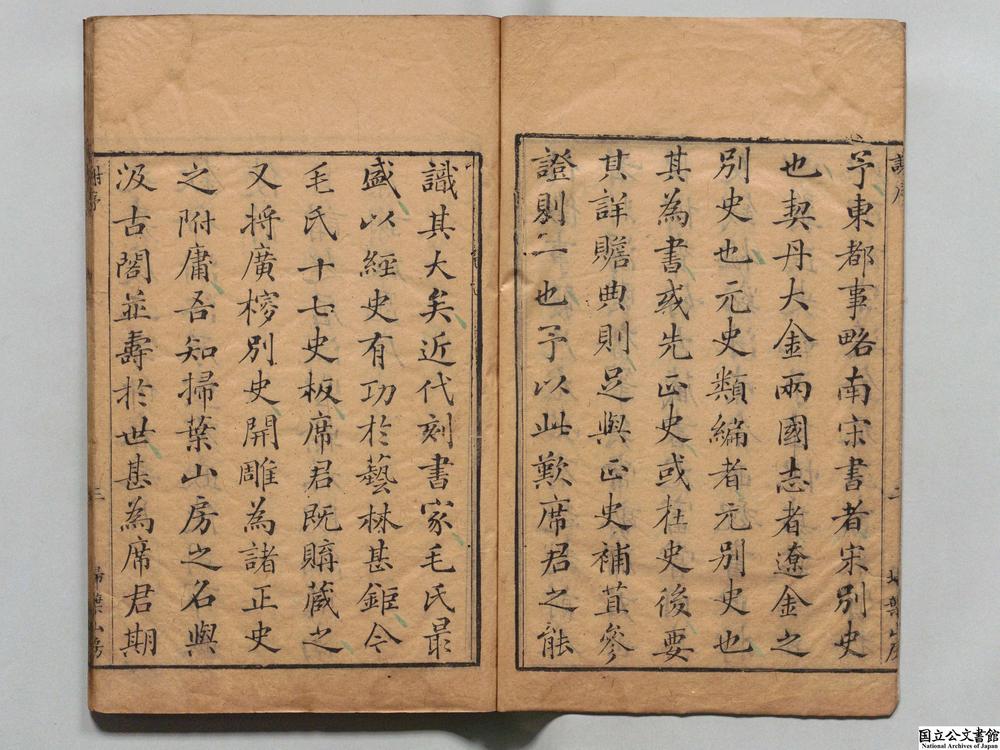 予東都事略南宋書者宋別史
也契丹大金兩國志者遼金之
別史也元史類編者元別史也
其為書或先正史或在史後要
其詳贍典則足與正史補苴參
證則一也予以此歎席君之能
識其大矣近代刻書家毛氏最
盛以經史有功於藝林甚鉅今
毛氏十七史板席君既購藏之
又将廣榜別史開雕為諸正史
之附庸吾知掃葉山房之名與
汲古閣並壽於世甚為席君期
三
掃葉山房
国立公文書館
National Archives of Japan